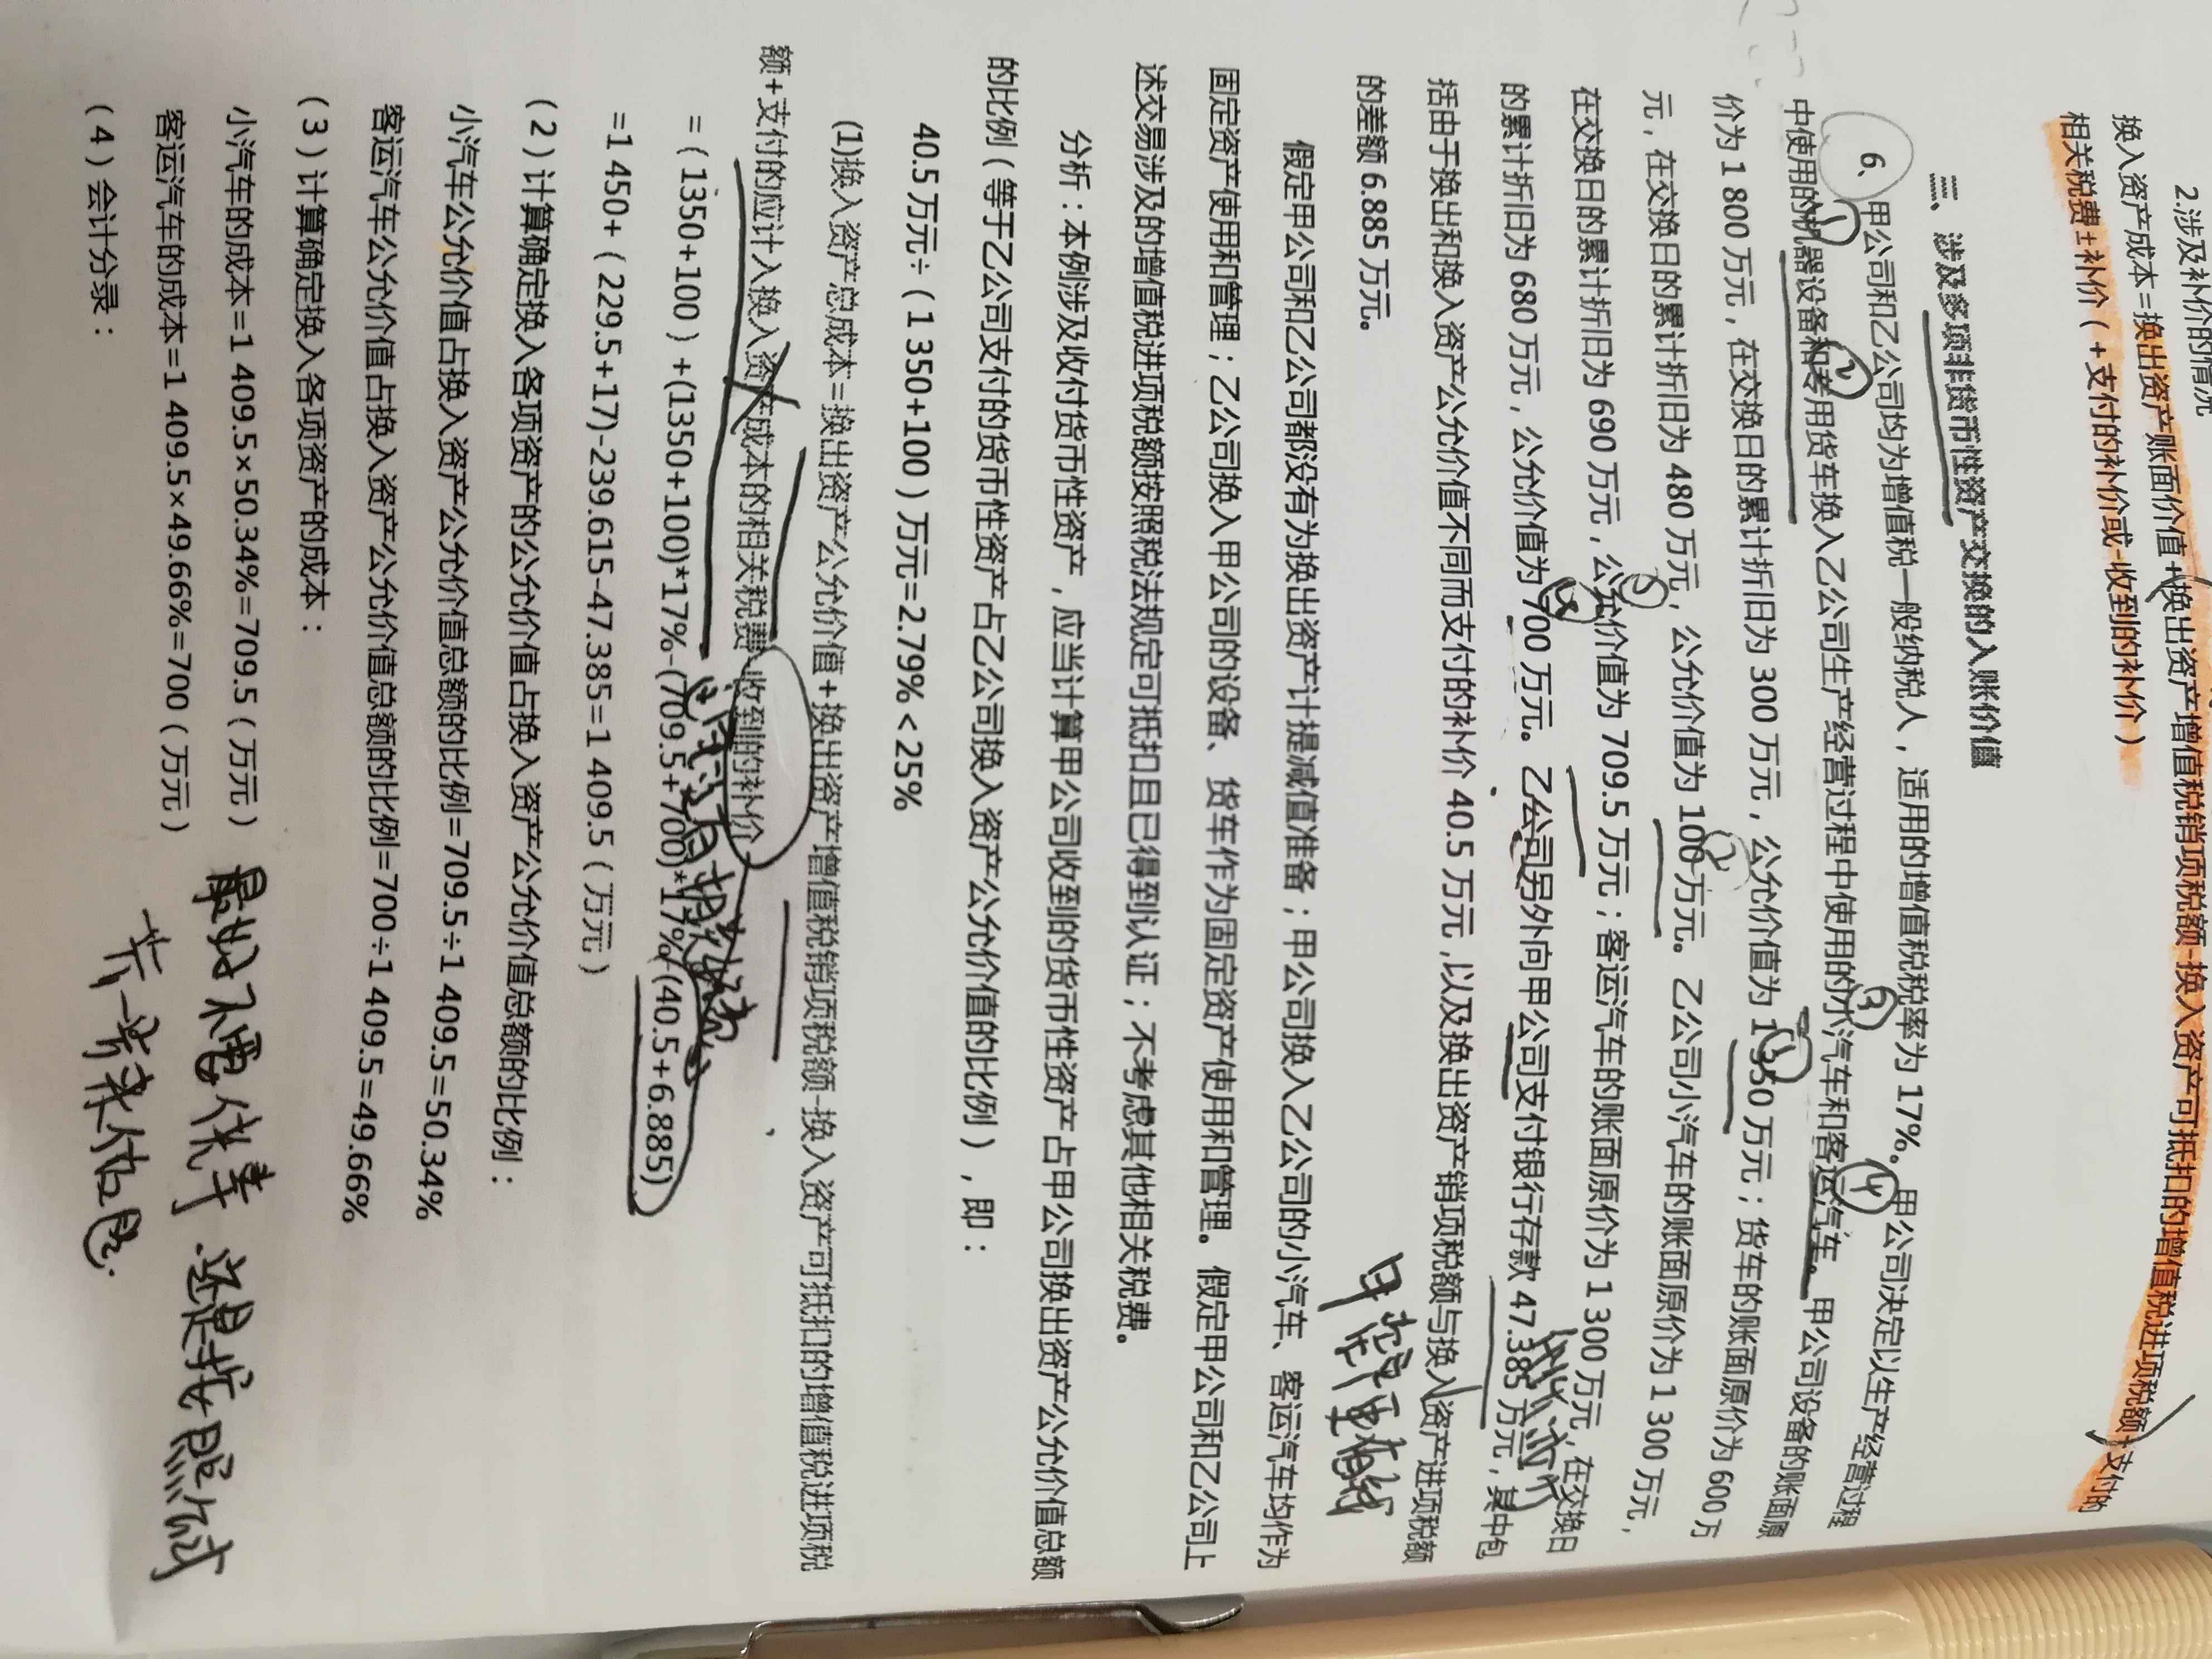 2.涉及补价的情况
换入资产成本=换出资产账面价值+换出资产增值税销项税额-换入资产可抵扣的增值税进项税额+支付的
相关税费±补价（+支付的补价或-收到的补价）
二、涉及多项非货币性资产交换的入账价值
6、甲公司和乙公司均为增值税一般纳税人，适用的增值税税率为17%。甲公司决定以生产经营过程
中使用的机器设备和专用货车换入乙公司生产经营过程中使用的小汽车和客运汽车。甲公司设备的账面原
价为1 800万元，在交换日的累计折旧为300万元，公允价值为1 350万元；货车的账面原价为600万
元，在交换日的累计折旧为480万元，公允价值为100万元。乙公司小汽车的账面原价为1 300万元，
在交换日的累计折旧为690万元，公允价值为709.5万元；客运汽车的账面原价为1 300万元，在交换日
的累计折旧为680万元，公允价值为700万元。乙公司另外向甲公司支付银行存款47.385万元，其中包
括由于换出和换入资产公允价值不同而支付的补价40.5万元，以及换出资产销项税额与换入资产进项税额
的差额6.885万元。
假定甲公司和乙公司都没有为换出资产计提减值准备；甲公司换入乙公司的小汽车、客运汽车均作为
固定资产使用和管理；乙公司换入甲公司的设备、货车作为固定资产使用和管理。假定甲公司和乙公司上
述交易涉及的增值税进项税额按照税法规定可抵扣且已得到认证；不考虑其他相关税费。
分析：本例涉及收付货币性资产，应当计算甲公司收到的货币性资产占甲公司换出资产公允价值总额
的比例（等于乙公司支付的货币性资产占乙公司换入资产公允价值的比例），即：
40.5万元÷（1 350+100）万元=2.79%＜25%
(1)换入资产总成本=换出资产公允价值+换出资产增值税销项税额-换入资产可抵扣的增值税进项税
额+支付的应计入换入资产成本的相关税费-收到的补价
=（1350+100）+(1350+100)*17%-(709.5+700)*17%-(40.5+6.885)
=1 450+（229.5+17)-239.615-47.385=1 409.5（万元）
（2）计算确定换入各项资产的公允价值占换入资产公允价值总额的比例：
小汽车公允价值占换入资产公允价值总额的比例=709.5÷1 409.5=50.34%
客运汽车公允价值占换入资产公允价值总额的比例=700÷1 409.5=49.66%
（3）计算确定换入各项资产的成本：
小汽车的成本=1 409.5×50.34%=709.5（万元）
客运汽车的成本=1 409.5×49.66%=700（万元）
（4）会计分录：